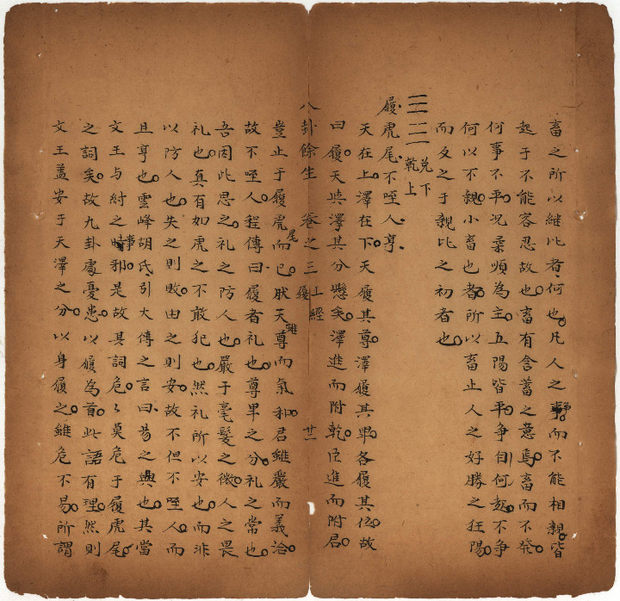 畜之所以継此者何也凡人之爭而不能相親皆
起于不能容忍故也畜有含蓄之意焉畜而不発
何事不平况柔順為主五陽皆平爭自何起不爭
何以不親小畜也者所以畜止人之好勝之狂陽
而反之于親比之初者也
兌下
乾上
履虎尾不咥人亨
天在上澤在下天履其尊澤履其卑各履其位故
曰履天與澤其分懸矣澤進而附乾臣進而附君
八卦餘生 卷之三 上經 履 廿一
豈止于履虎尾而已肰天雖尊而氣和君雖嚴而義洽
故不咥人程傳曰履者礼也尊卑之分礼之常也
吾因此思之礼之防人也嚴于毫髮之微人之畏
礼也真有如虎之不敢犯也然礼所以安也而非
以防人也失之則敗由之則安故不但不咥人而
且亨也雲峰胡氏引大傳之言曰易之興也其當
文王與紂之事和是故其詞危危莫危于履虎尾
之詞矣故九卦處憂患以履為首此語有理然則
文王蓋安于天澤之分以身履之雖危不易所謂